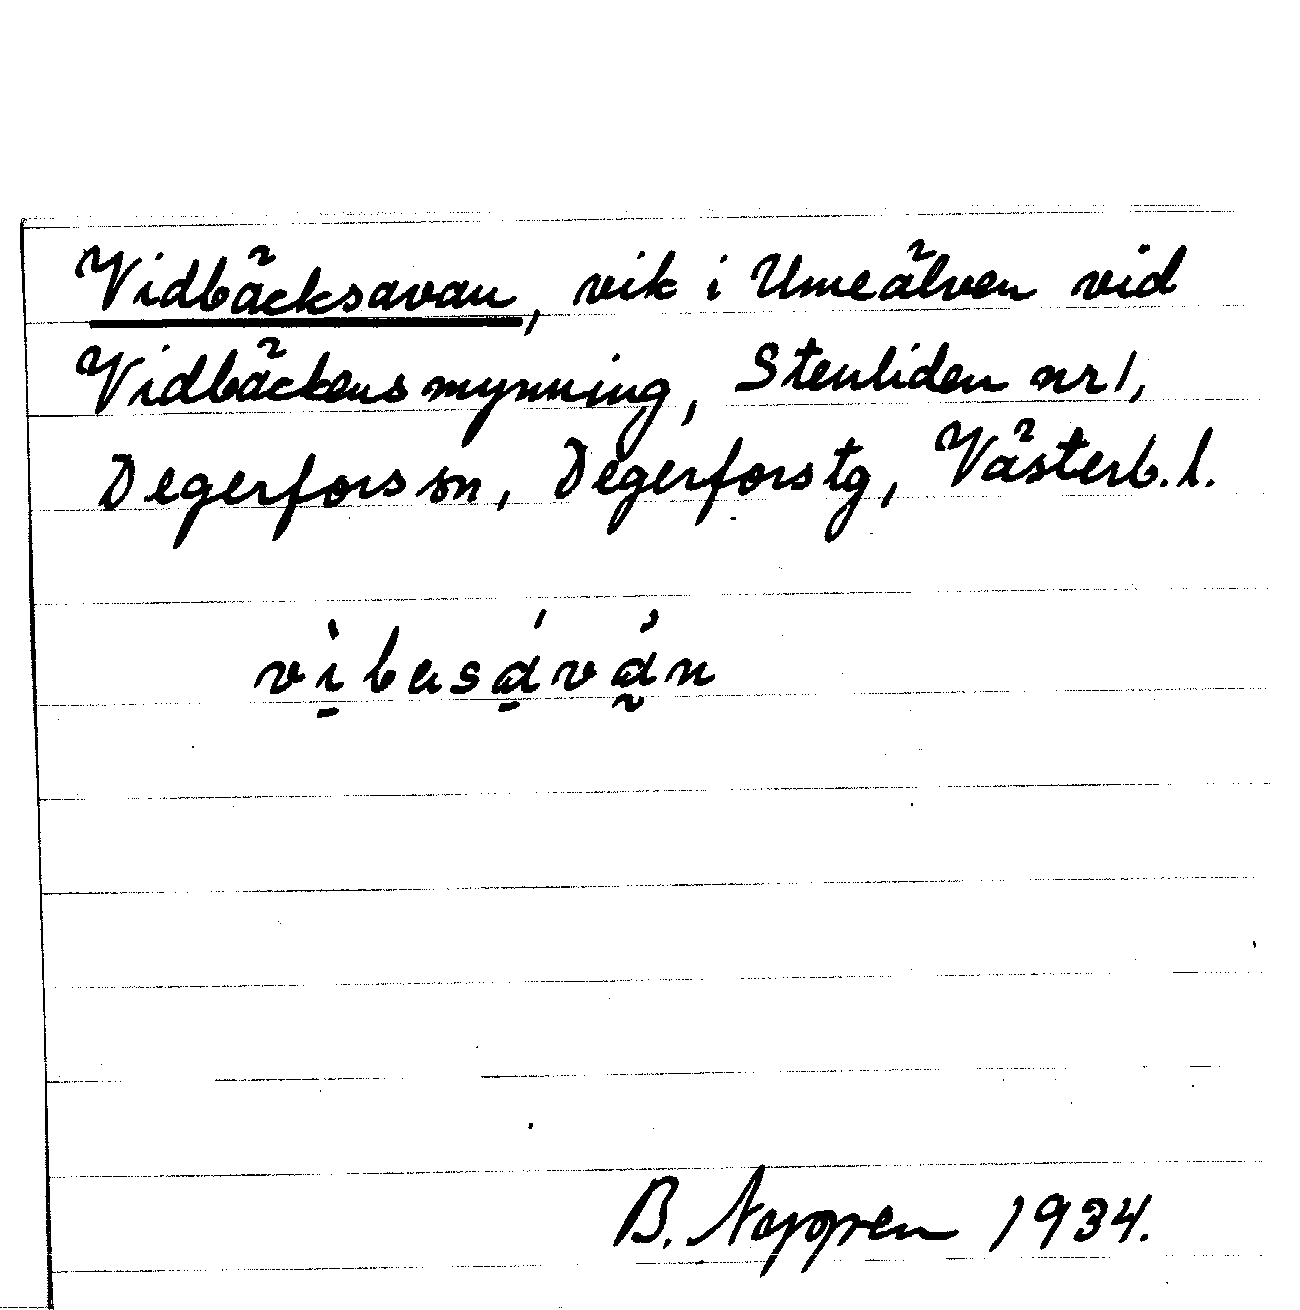 Vidbäcksavan, vik i Umeälven vid
Vidbäckens mynning, Stenliden nr 1,
Degerfors sn, Degerfors tg, Västerb. l.
B. 1934.